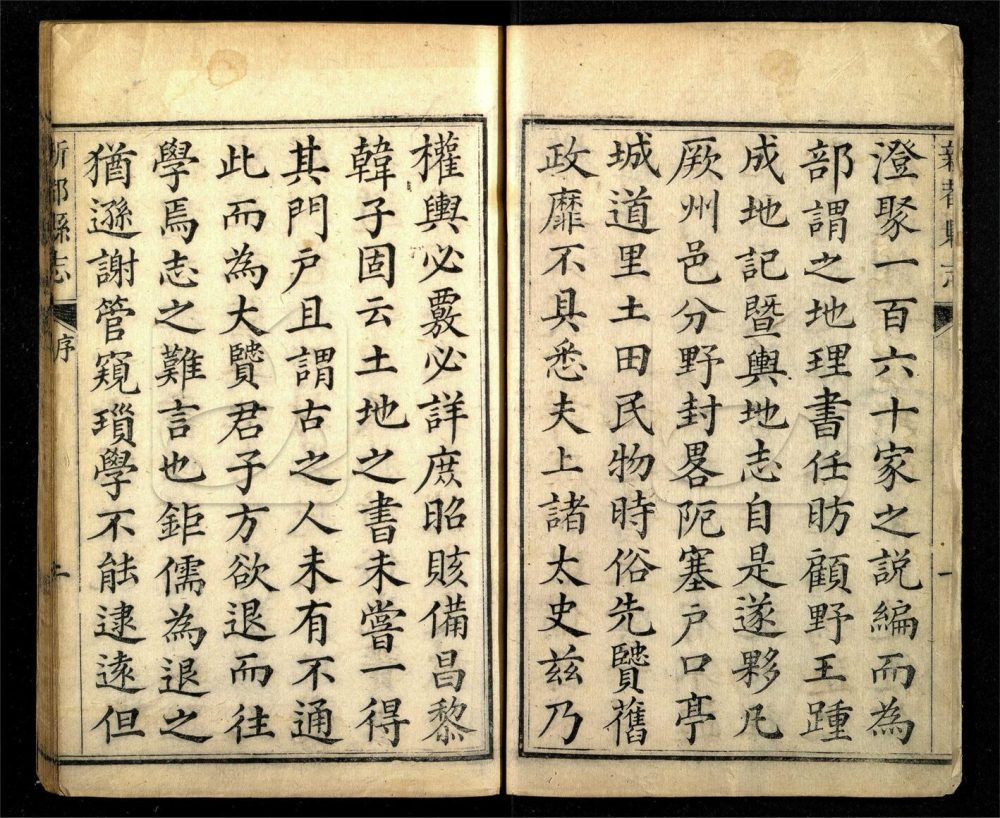 新都縣志
一
澄聚一百六十家之説編而為
部謂之地理書任昉顧野王踵
成地記暨輿地志自是遂夥凡
厥州邑分野封畧阨塞户口亭
城道里土田民物時俗先贒舊
政靡不具悉夫上諸太史兹乃
權輿必覈必詳庶昭賅備昌黎
韓子固云土地之書未嘗一得
其門户且謂古之人未有不通
此而為大贒君子方欲退而往
學焉志之難言也鉅儒為退之
猶遜謝管窺瑣學不能逮遠但
新都縣志
序
二